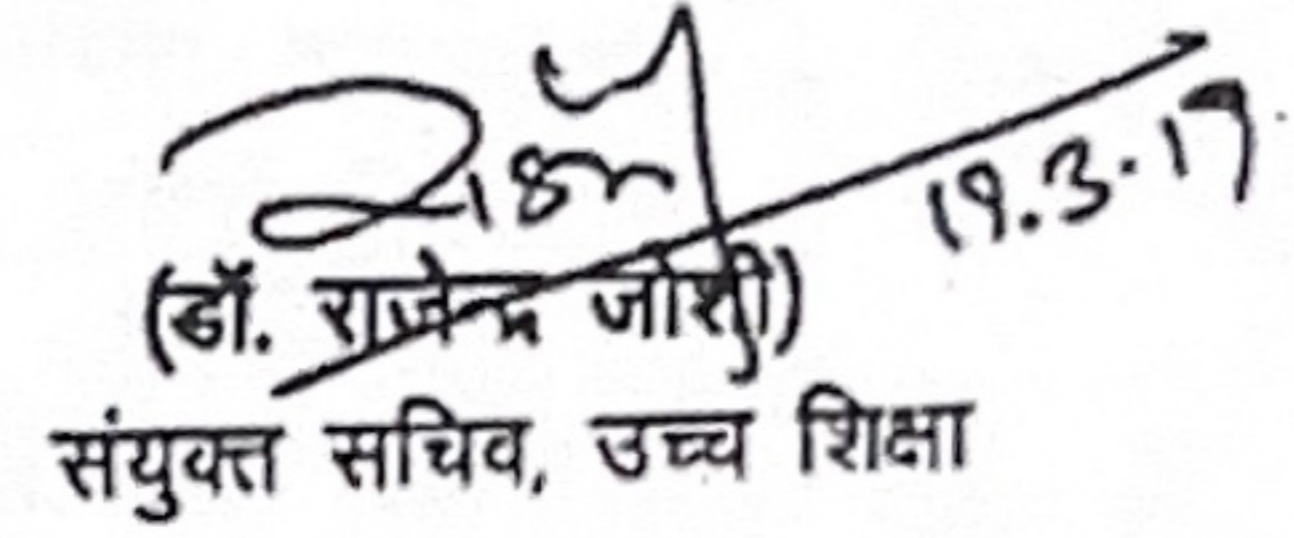 19.3.19
(डॉ. राजेन्द्र जोशी)
संयुक्त सचिव, उच्च शिक्षा